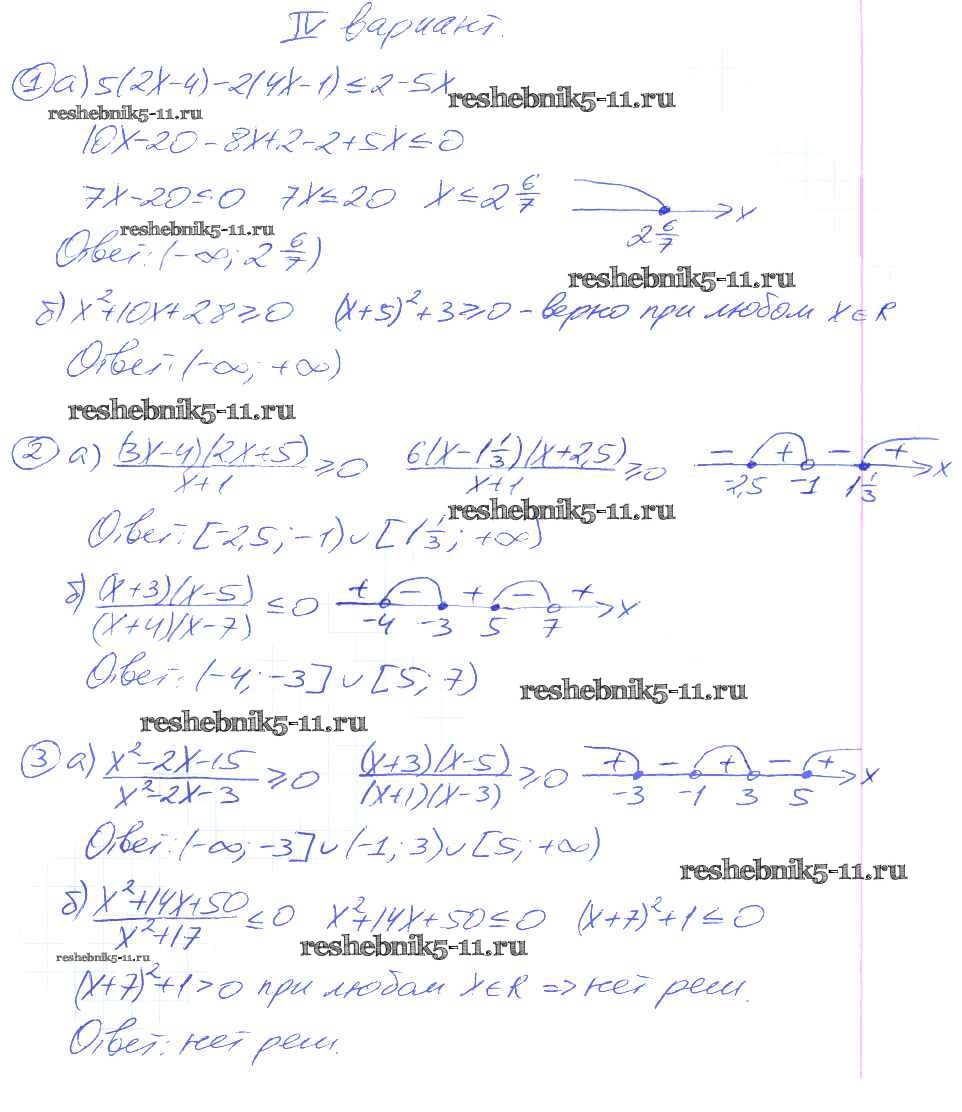 IV вариант.
① а) 5(2x-4)-2(4x-1)≤2-5x
reshebnik5-11.ru
reshebnik5-11.ru
10x-20-8x+2-2+5x≤0
7x-20≤0 7x≤20 x≤2 6/7 2 6/7 x
reshebnik5-11.ru
Ответ: (-∞; 2 6/7)
reshebnik5-11.ru
б) x²+10x+28≥0 (x+5)²+3≥0 - верно при любом x∈R
Ответ: (-∞; +∞)
reshebnik5-11.ru
② а) (3x-4)(2x+5)/(x+1) ≥0 6(x-1 1/3)(x+2,5)/(x+1) ≥0 - + - + -2,5 -1 1 1/3 x
reshebnik5-11.ru
Ответ: [-2,5; -1)∪[1 1/3; +∞)
б) (x+3)(x-5)/(x+4)(x-7) ≤0 + - + - + -4 -3 5 7 x
Ответ: (-4; -3]∪[5; 7)
reshebnik5-11.ru
reshebnik5-11.ru
③ а) x²-2x-15/x²-2x-3 ≥0 (x+3)(x-5)/(x+1)(x-3) ≥0 + - + - + -3 -1 3 5 x
Ответ: (-∞; -3]∪(-1; 3)∪[5; +∞)
reshebnik5-11.ru
б) x²+14x+50/x²+17 ≤0 x²+14x+50≤0 (x+7)²+1≤0
reshebnik5-11.ru
reshebnik5-11.ru
(x+7)²+1>0 при любом x∈R ⇒ нет реш.
Ответ: нет реш.